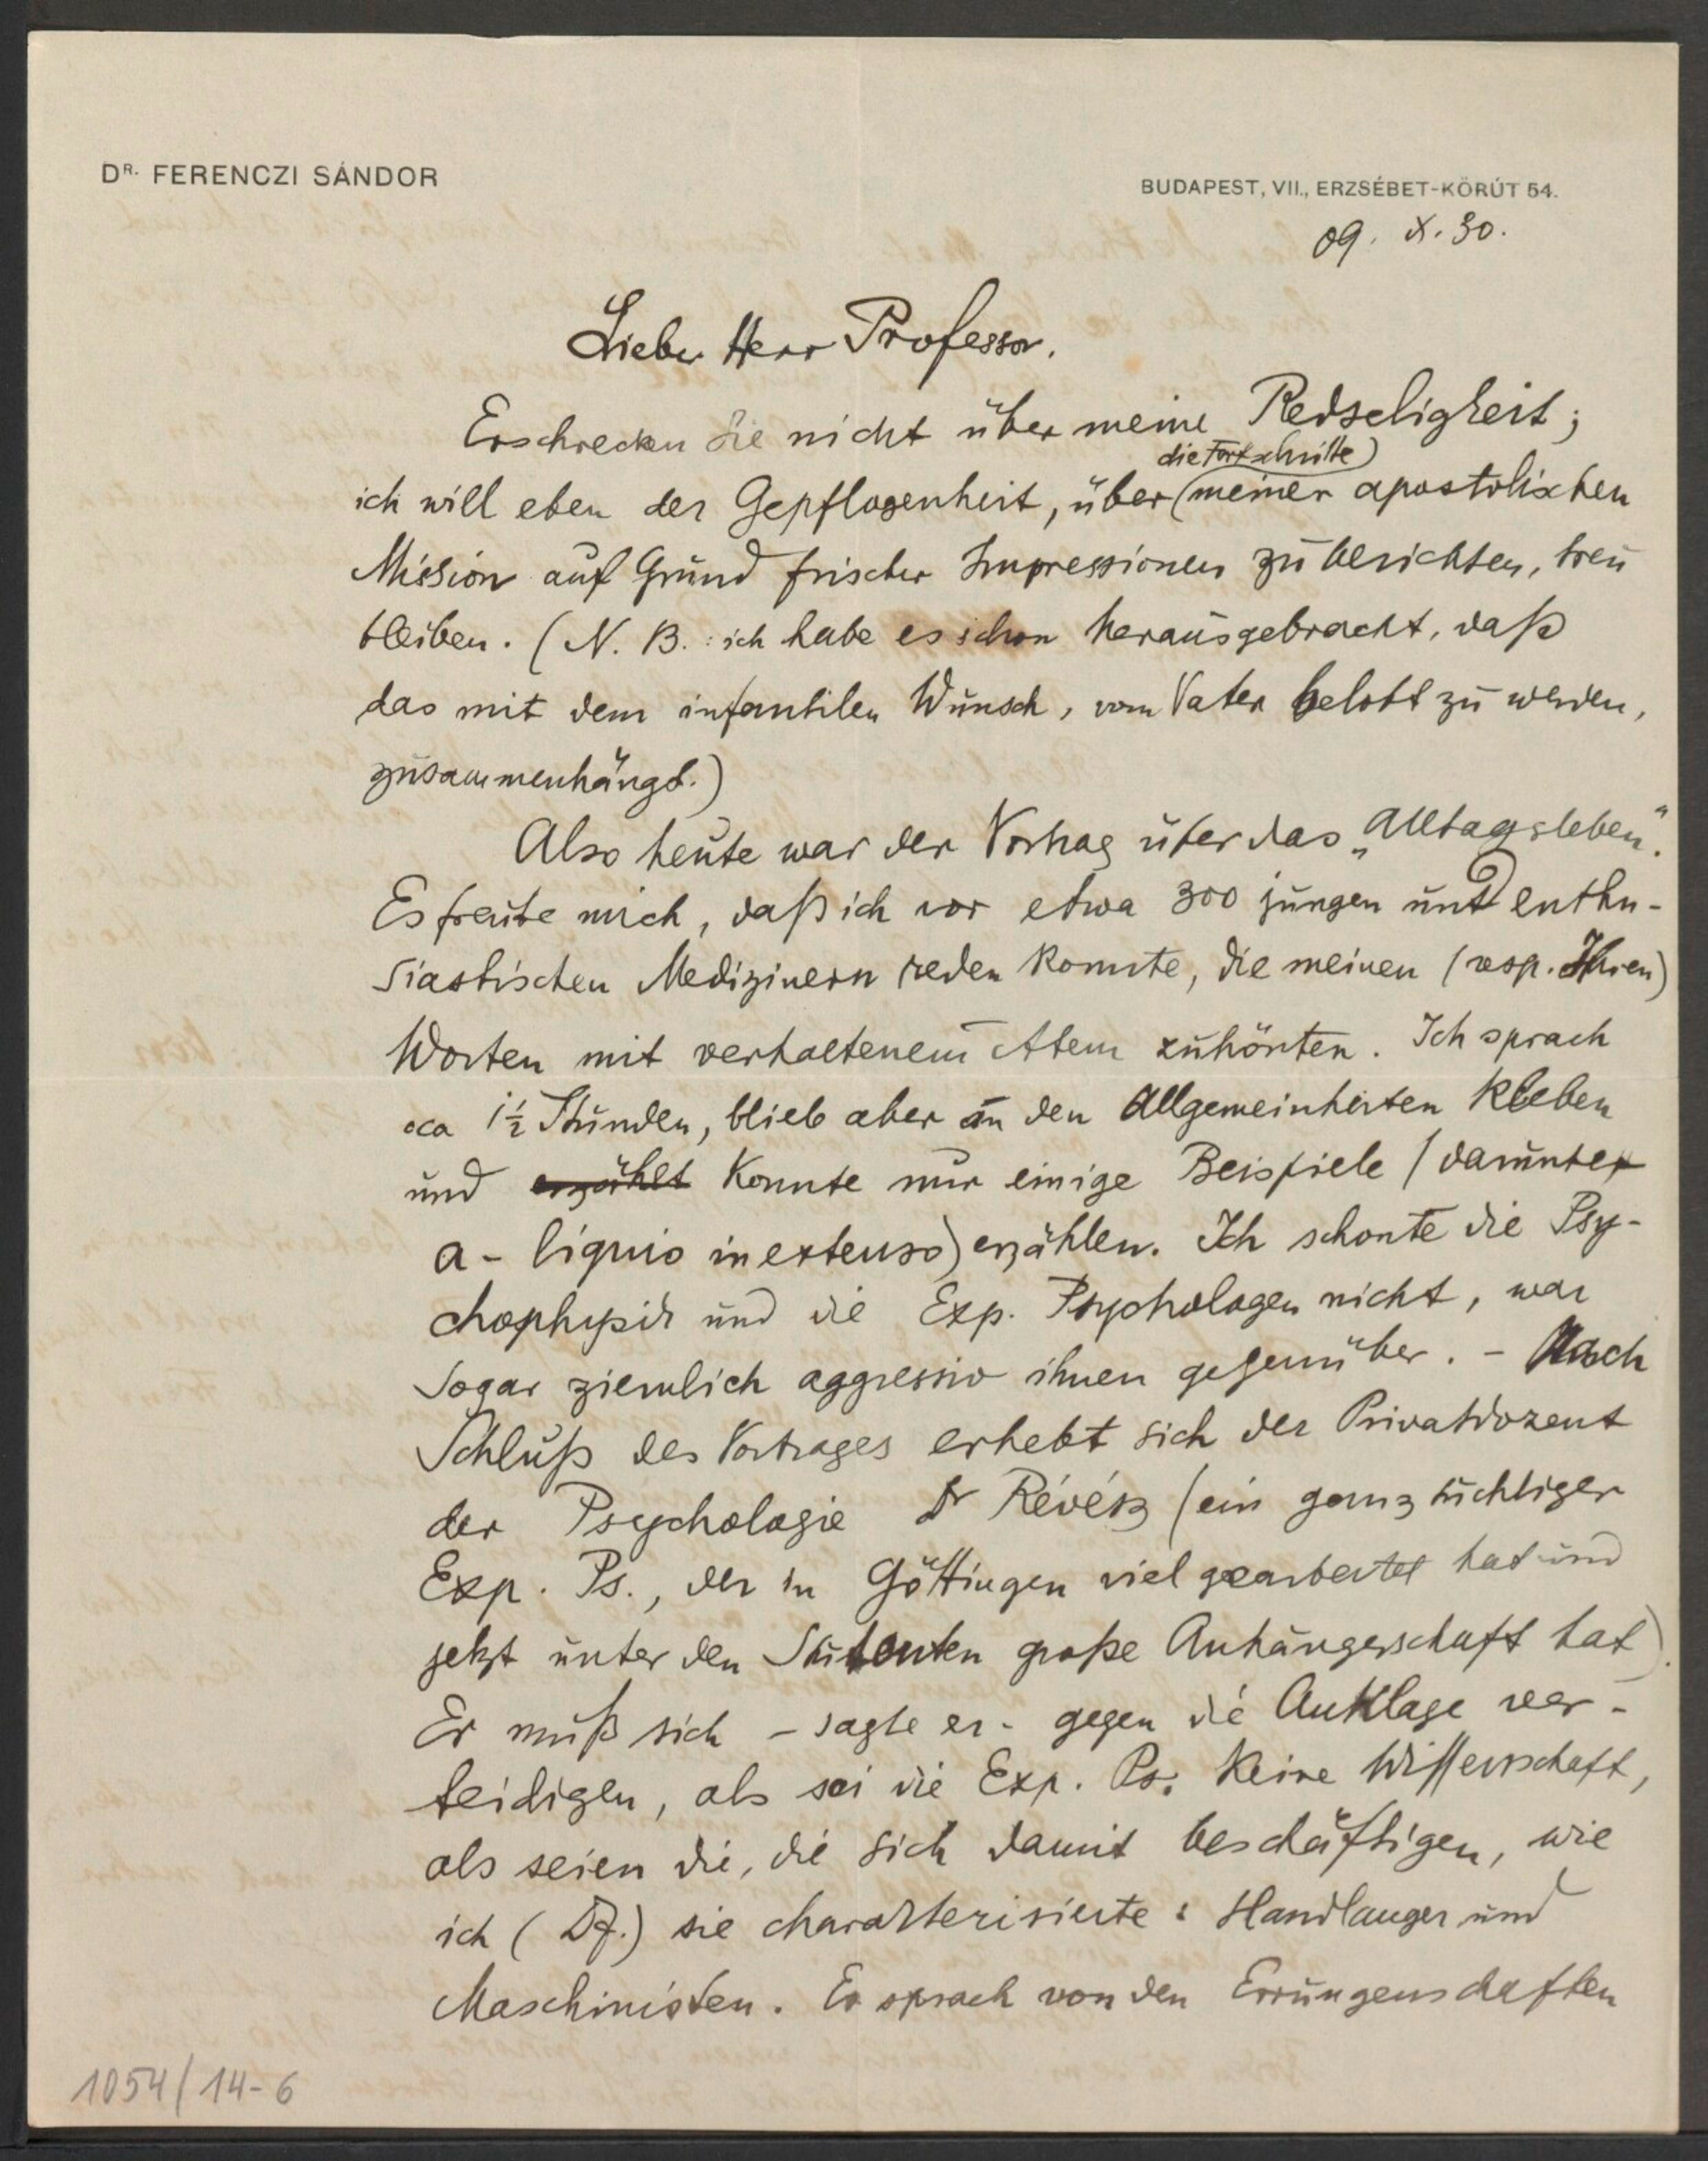 DR. FERENCZI SÁNDOR
BUDAPEST, VII., ERZSÉBET-KÖRÚT 54.
09. X. 30.
Lieber Herr Professor.
Erschrecken Sie nicht über meine Redseligkeit;
die Fortschritte)
ich will eben der Gepflogenheit, über (meiner apostolischen
Mission auf Grund frischer Impressionen zu berichten, treu
bleiben. (N. B.: ich habe es schon herausgebracht, daß
das mit dem infantilen Wunsch, vom Vater belobt zu werden,
zusammenhängt.)
Also heute war der Vortrag über das „Alltagsleben“.
Es freute mich, daß ich vor etwa 300 jungen und enthu-
siastischen Medizinern reden konnte, die meinen (resp. Ihren)
Worten mit verhaltenem Atem zuhörten. Ich sprach
cca 1½ Stunden, blieb aber an den Allgemeinheiten kleben
und erzählt konnte nur einige Beispiele (darunter
a-liquis in extenso) erzählen. Ich schonte die Psy-
chophysik und die Exp. Psychologen nicht, war
sogar ziemlich aggressiv ihnen gegenüber. – Nach
Schluß des Vortrages erhebt sich der Privatdozent
der Psychologie Dr Révész (ein ganz tüchtiger
Exp. Ps., der in Göttingen viel gearbeitet hat und
jetzt unter den Studenten große Anhängerschaft hat).
Er muß sich – sagte er – gegen die Anklage ver-
teidigen, als sei die Exp. Ps. keine Wissenschaft,
als seien die, die sich damit beschäftigen, wie
ich (Df.) sie charakterisierte: Handlanger und
Maschinisten. Er sprach von den Errungenschaften
1054/14-6